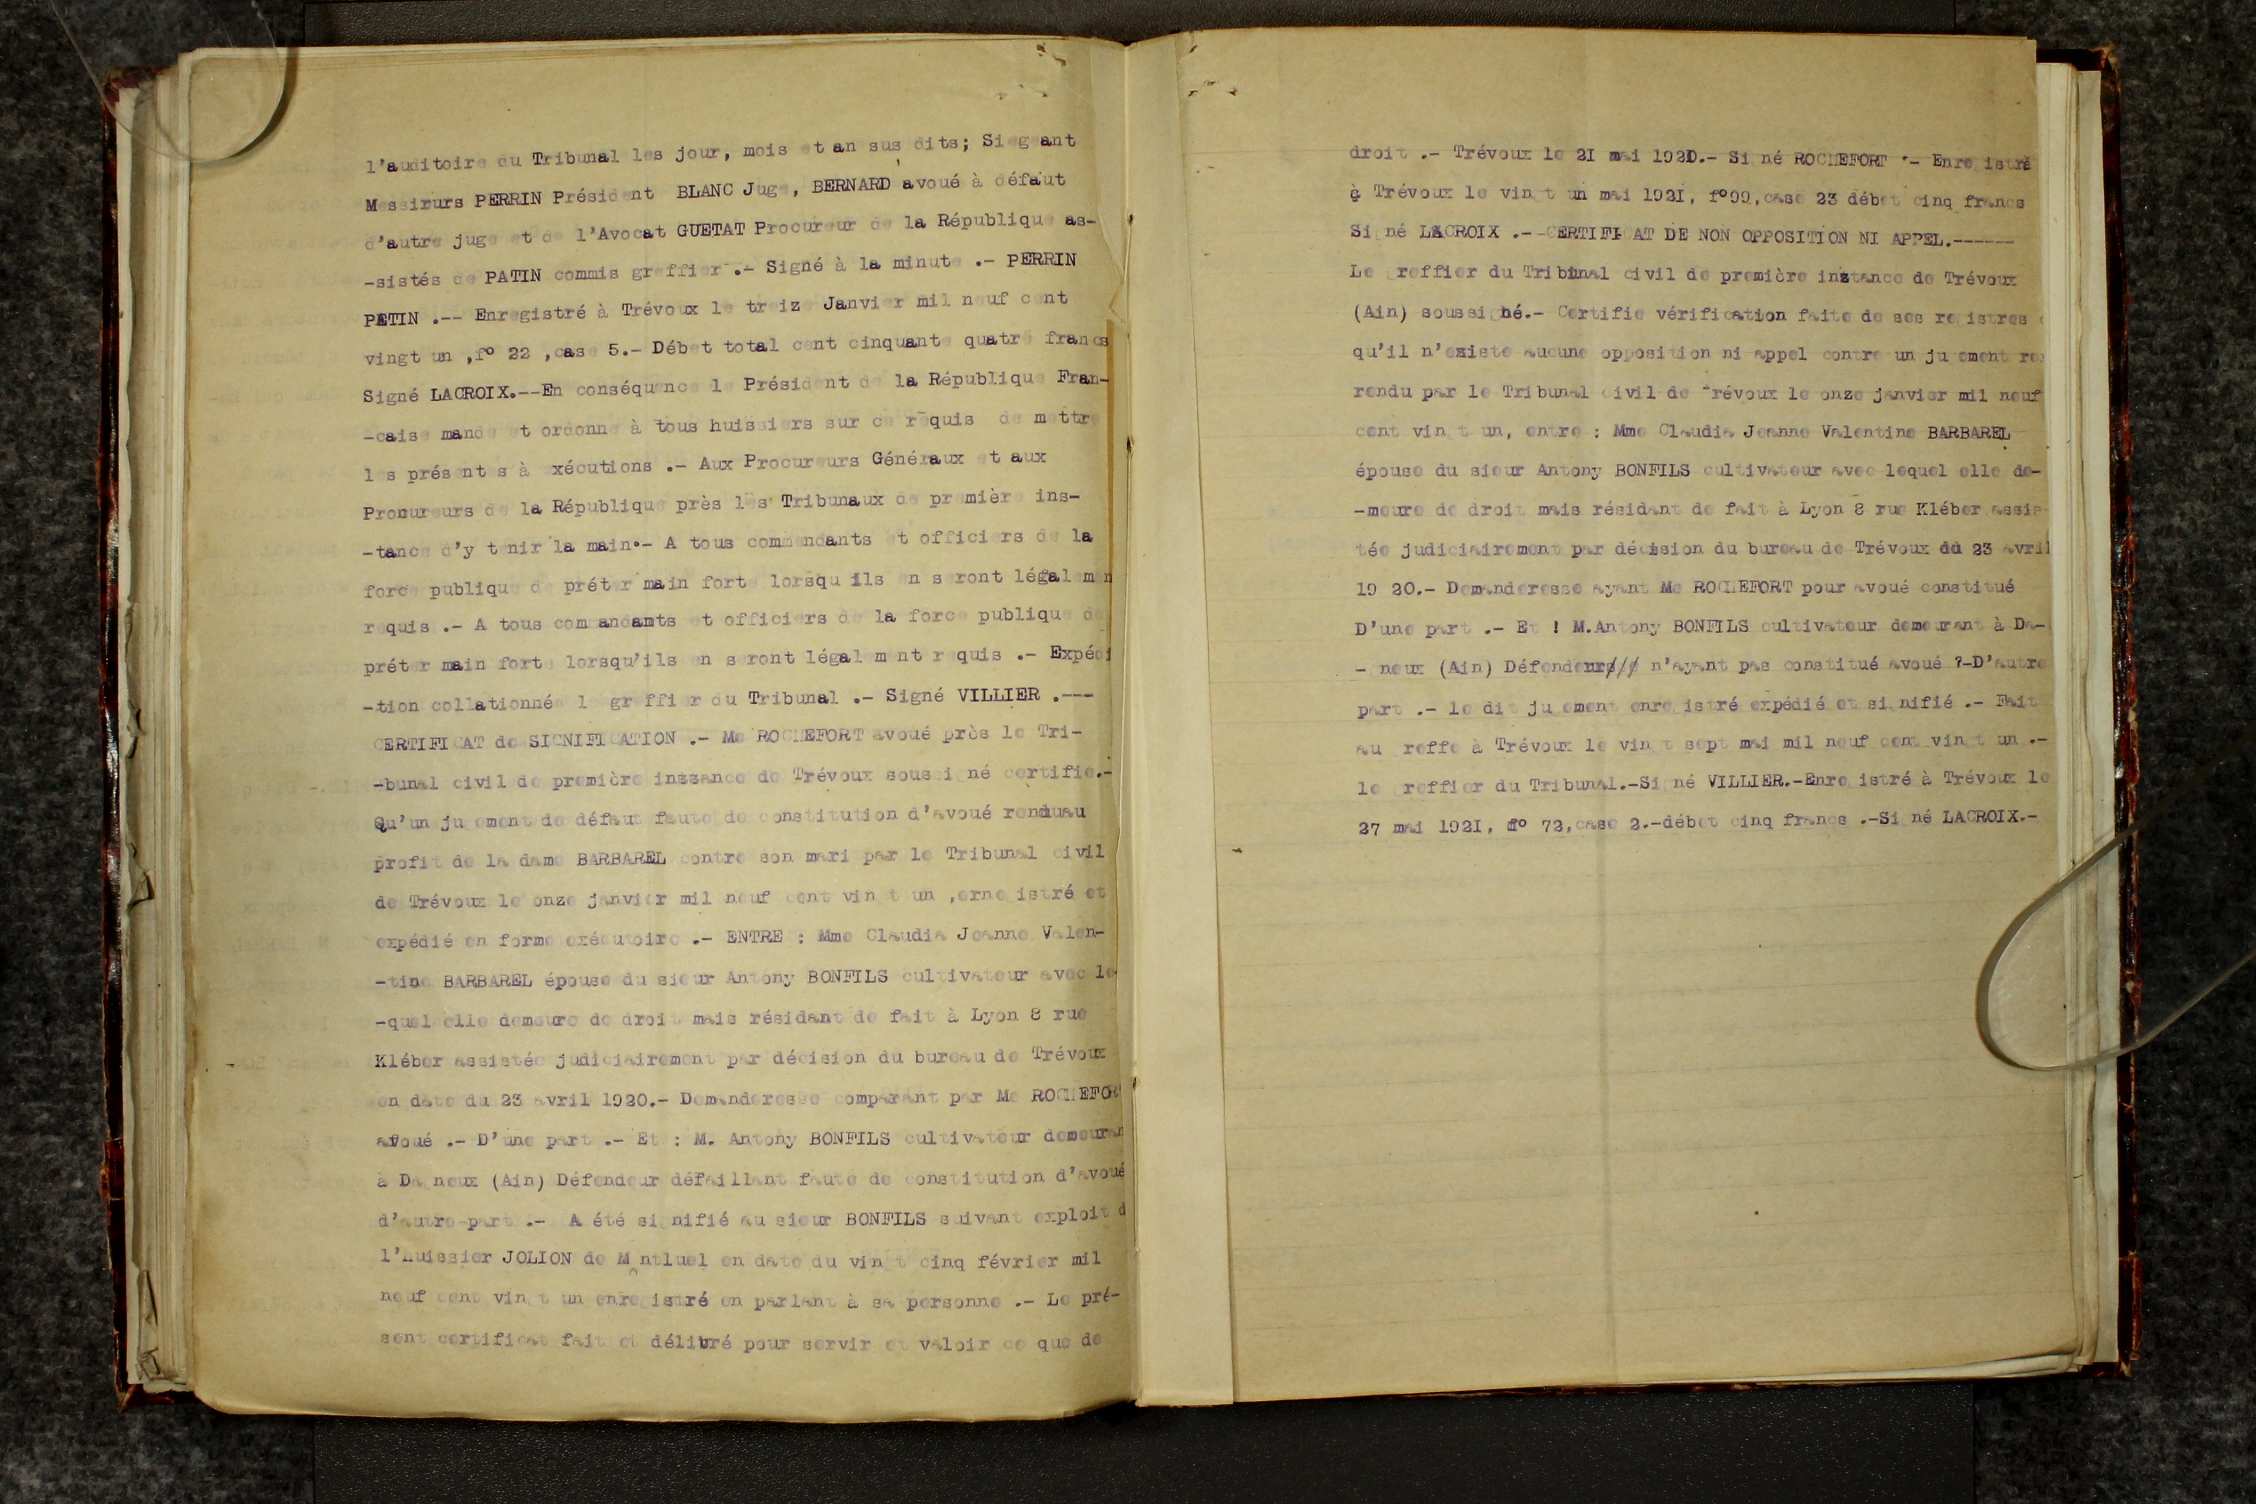 l'auditoire du Tribunal les jour, mois et an sus dits; Siegeant
Messirurs PERRIN Président BLANC Juge, BERNARD avoué à défaut
d'autre juge et de l'Avocat GUETAT Procureur de la République as-
-sistés de PATIN commis greffier .- Signé à la minute .- PERRIN
PATIN .-- Enregistré à Trévoux le treize Janvier mil neuf cent
vingt un ,f° 22 ,case 5.- Débet total cent cinquante quatre francs
Signé LACROIX.--En conséquence le Président de la République Fran-
-caise mande et ordonne à tous huissiers sur ce requis de mettre
les présentes à exécutions .- Aux Procureurs Généraux et aux
Procureurs de la République près les Tribunaux de première ins-
-tance d'y tenir la main.- A tous commendants et officiers de la
force publique de préter main forte lorsqu ils en seront légalemen
requis .- A tous commandants et officiers de la force publique de
préter main forte lorsqu'ils en seront légalement requis .- Expédi
-tion collationnée le greffier du Tribunal .- Signé VILLIER .---
CERTIFICAT de SIGNIFICATION .- Me ROCHEFORT avoué près le Tri-
-bunal civil de première inszance de Trévoux soussigné certifie.-
Qu'un jugement de défaut faute de constitution d'avoué renduau
profit de la dame BARBAREL contre son mari par le Tribunal civil
de Trévoux le onze janvier mil neuf cent vingt un ,ernegistré et
expédié en forme exécutoire .- ENTRE : Mme Claudia Jeanne Valen-
-tine BARBAREL épouse du sieur Antony BONFILS cultivateur avec le
-quel elle demeure de droit mais résidant de fait à Lyon 8 rue
Kléber assistée judiciairement par décision du bureau de Trévoux
en date du 23 avril 1920.- Demanderesse comparant par Me ROCHEFOR
avoué .- D'une part .- Et : M. Antony BONFILS cultivateur demeuran
à Dagneux (Ain) Défendeur défaillant faute de constitution d'avoué
d'autre part .- A été signifié au sieur BONFILS suivant exploit d
l'huissier JOLION de Montluel en date du vingt cinq février mil
neuf cent vingt un enregistré en parlant à sa personne .- Le pré-
sent certificat fait et délibré pour servir et valoir ce que de
droit .- Trévoux le 2I mai 192I.- Signé ROCHEFORT .- Enregistré
à Trévoux le vingt un mai 192I, f°99,case 23 débet cinq francs
Signé LACROIX .--CERTIFICAT DE NON OPPOSITION NI APPEL.------
Le greffier du Tribunal civil de première instance de Trévoux
(Ain) soussigné.- Certifie vérification faite de ses registres
qu'il n'existe aucune opposition ni appel contre un jugement re
rendu par le Tribunal civil de Trévoux le onze janvier mil neuf
cent vingt un, entre : Mme Claudia Jeanne Valentine BARBAREL
épouse du sieur Antony BONFILS cultivateur avec lequel elle de-
-meure de droit mais résidant de fait à Lyon 8 rue Kléber assis
tée judiciairement par décision du bureau de Trévoux du 23 avril
19 20.- Demanderesse ayant Me ROCHEFORT pour avoué constitué
D'une part .- Et ! M.Antony BONFILS cultivateur demeurant à Da-
-gneux (Ain) Défendeur/// n'ayant pas constitué avoué ?-D'autre
part .- le dit jugement enregistré expédié et signifié .- Fait
au greffe à Trévoux le vingt sept mai mil neuf cent vingt un .-
le greffier du Tribunal.-Signé VILLIER.-Enregistré à Trévoux le
27 mai 192I, f° 72,case 2.-débet cinq francs .-Signé LACROIX.-